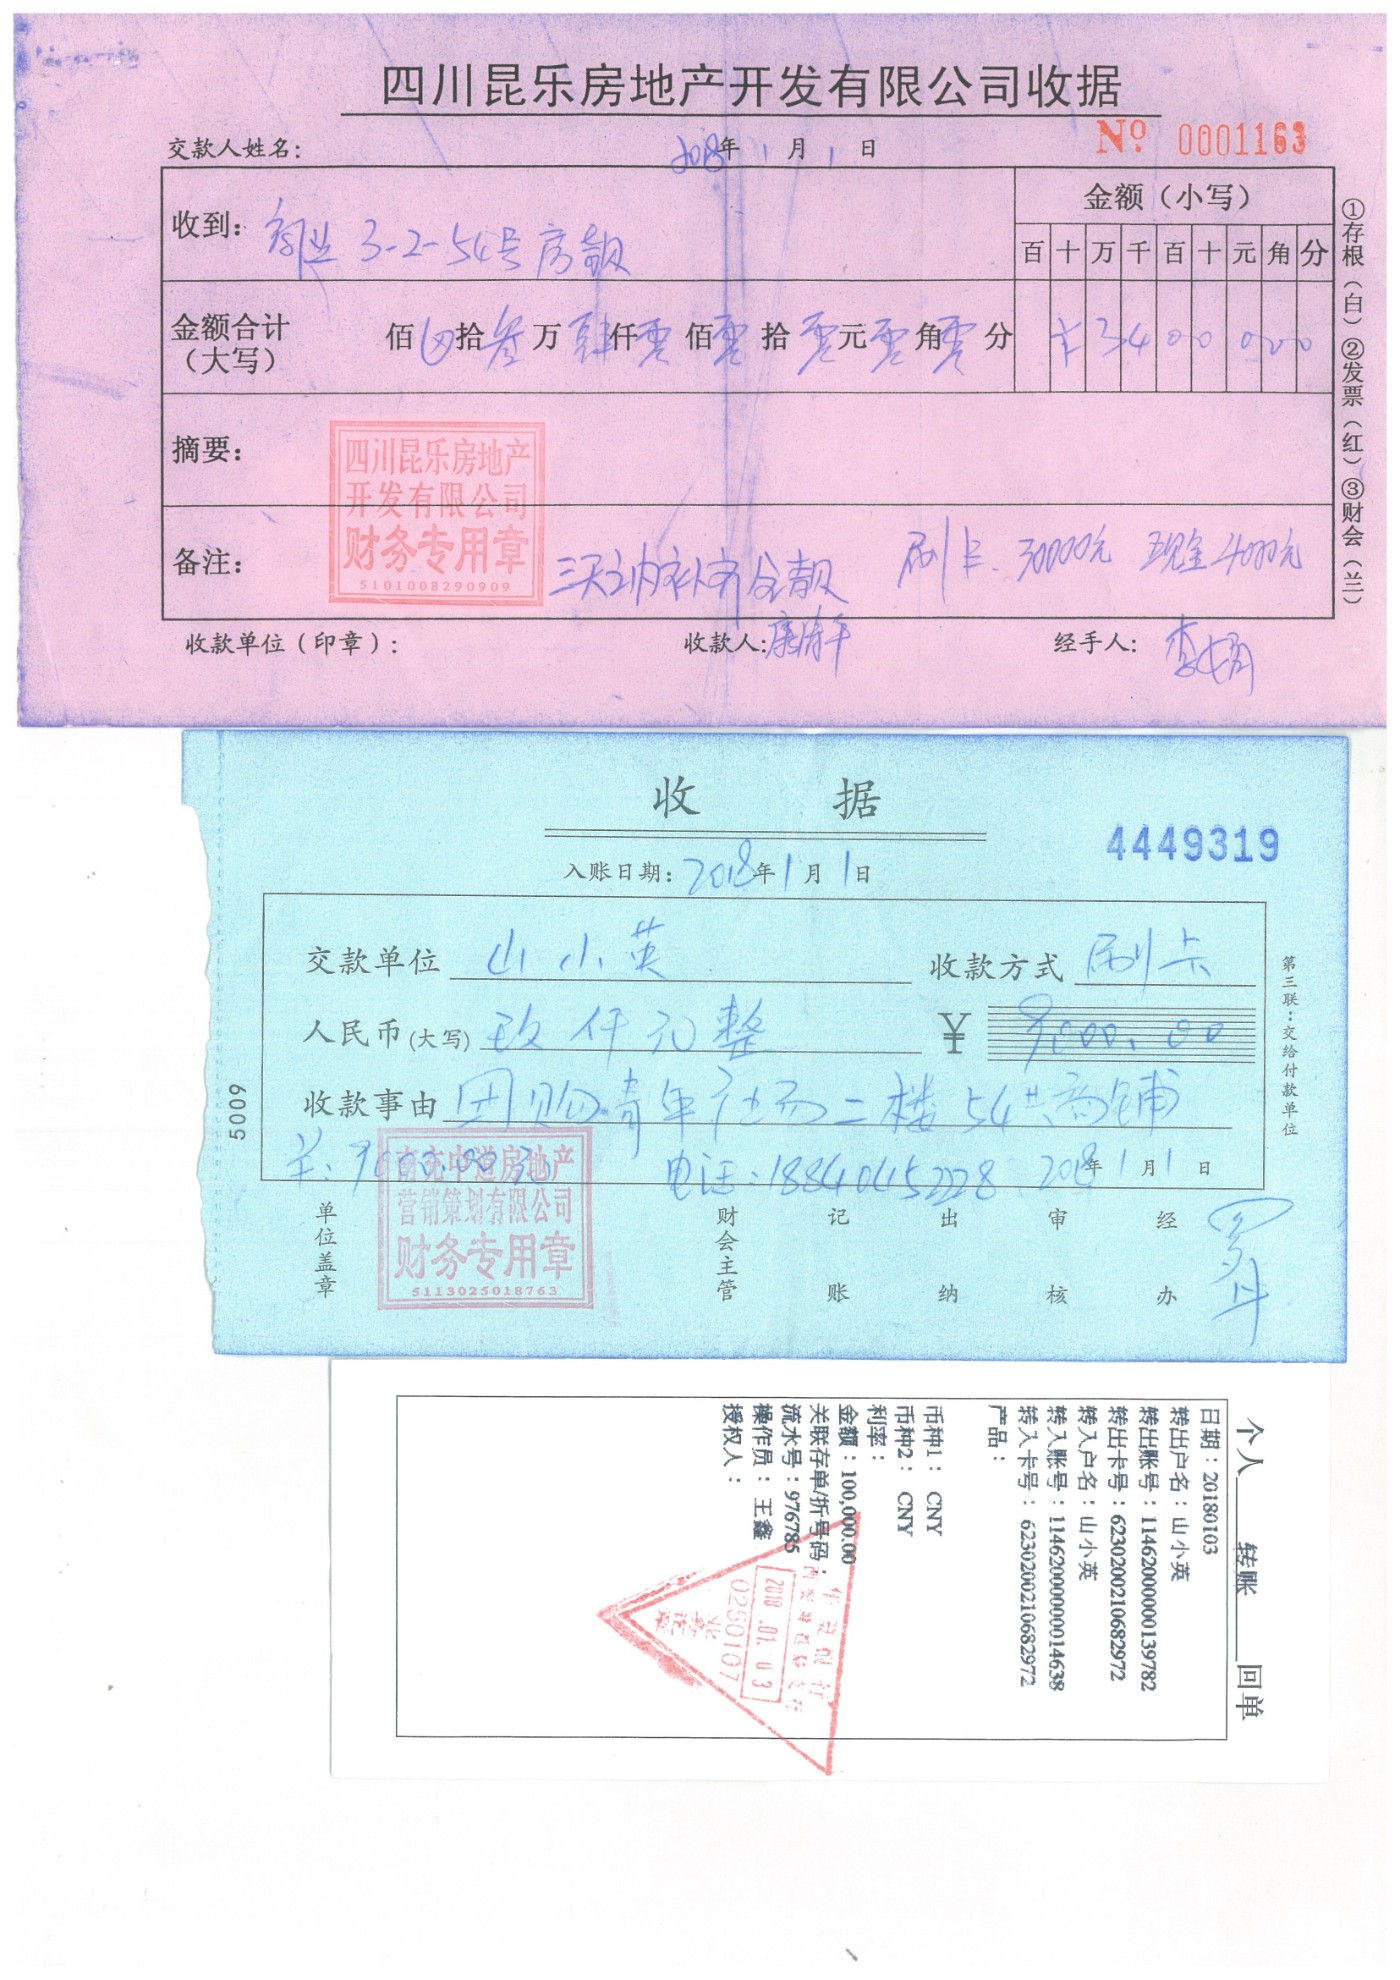 四川昆乐房地产开发有限公司收据
交款人姓名: 2018年1月1日 Nº 0001163
收到: 商业3-2-54号房款 金额(小写)
百 十 万 千 百 十 元 角 分
金额合计(大写) 佰 拾叁万肆仟零佰零拾零元零角零分 ¥3400000
摘要:
四川昆乐房地产
开发有限公司
财务专用章
5101008290909
备注: 三天之内补齐全款 刷卡30000元 现金4000元
收款单位(印章): 收款人: 经手人:
①存根(白)②发票(红)③财会(兰)
收 据
4449319
入账日期: 2018年1月1日
交款单位 山小英 收款方式 刷卡
人民币(大写) 玖仟元整 ¥ 9000.00
收款事由 团购青年广场二楼54#商铺
9000.00元 电话:18840452228 2018年1月1日
南充中道房地产
营销策划有限公司
财务专用章
5113025018763
单位盖章 财会主管 记账 出纳 审核 经办
第三联:交给付款单位
5009
个人 转账 回单
日期:20180103
转出户名:山小英
转出账号:11462000000139782
转出卡号:6230200210682972
转入户名:山小英
转入账号:11462000000014638
转入卡号:6230200210682972
产品:
币种1: CNY
币种2: CNY
利率:
金额:100,000.00
关联存单/折号码:
流水号:976785
操作员:王鑫
授权人:
2018.01.03
0250107